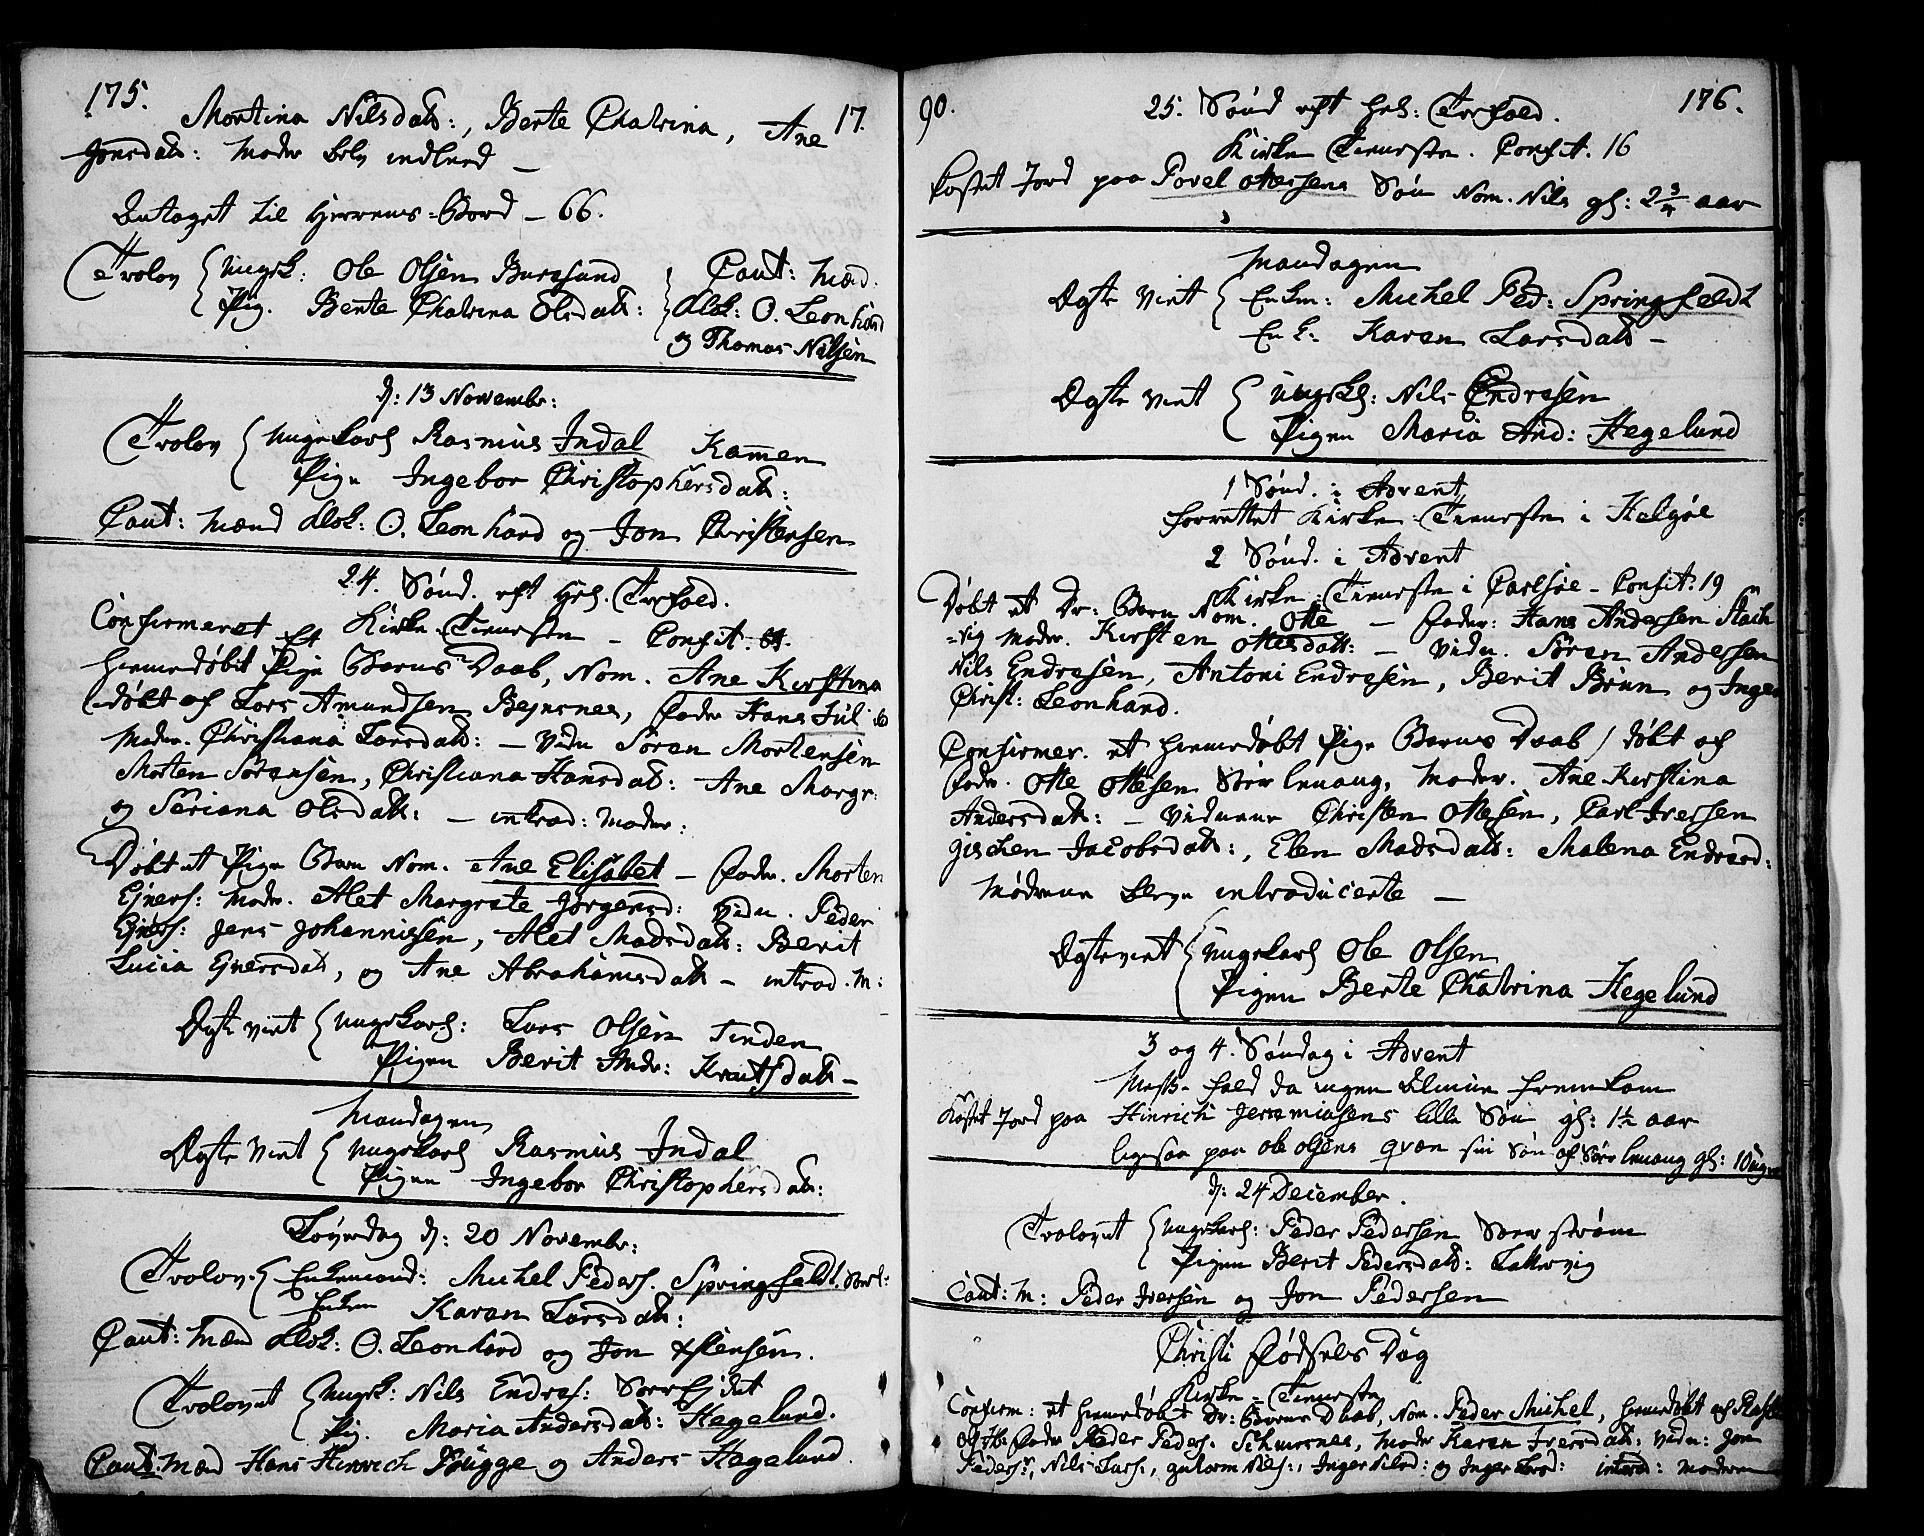 175.
17.
Mortina Nilsdatt:, Berte Chatrina, Ane
Jonsdatt: Moder blev indled —
Antaget til Herrens-Bord — 66.
Trolov { Ungk: Ole Olsen Buresund } Caut: Mænd
Pig. Bente Chatrina Olsdatt: klok: O. Leonhard
og Thomas Nilsen
d: 13 Novembr:
Trolov { Ungekarl Rasmus Indal Kamen
Pige Ingebor Christophersdatt:
Caut: Mænd klok: O. Leonhard og Jon Christensen
24. Sønd. eft Hel. Trefold.
Kirke-Tieneste — Confit. 64.
Confirmeret Et
hiemedøbt Pige Barns Daab, Nom. Ane Kirstina
døbt af Lars Amundsen Bejnsnes, Fader Hans Jul
Moder. Christiana Larsdatt: — Vidn Søren Mortensen
Morten Sørensen, Christiana Hansdatt: Ane Margr:
og Seriana Olsdatt: — introd: Moder:
Døbt et Pige Barn Nom. Ane Elisabet — Fader. Morten
Ejners: Moder. Alet Margrete Jørgensd: Vidn. Peder
Ejners: Jens Johannissen, Alet Madsdatt: Berit
Lucia Ejnersdatt, og Ane Abrahamsdatt — introd. M:
Ægte viet { Ungekarl: Lars Olsen Tinden
Pigen Berit Andr: Knutsdatt —
Mandagen
Ægte viet { Ungekarl Rasmus Indal
Pigen Ingebor Christophersdatt:
Løverdag d: 20 Novembr:
Trolov. { Enkemand: Michel Peders. Springfeldt.
Enken Karen Larsdatt:
Caut: Mænd klok: O. Leonhard og Jon Xstensen.
Trolovet { Ungk: Nils Endres: Sørfjdet
Pig. Maria Andersdatt: Hegelund.
Caut: Mænd Hans Hinrich Brügge og Anders Hegelund.
90.
176.
25. Sønd eft Hel: Trefold.
Kirke Tieneste. Confit. 16
Kastet Jord paa Povel Ottesens Søn Nom. Nils gl: 2 3/4 aar
Mandagen
Ægte viet { Enkm: Michel Ped: Springfeldt
Enk: Karen Larsdatt —
Ægte viet { Ungkl: Nils Endresen
Pigen Maria And: Hegelund
1 Sønd. i Advent
forrettet Kirke-Tieneste i Helgøe
2 Sønd. i Advent
Kirke-Tieneste i Carlsøe — Confit: 19
Døbt et Dr: Barn Nom. Otte — Fader: Hans Andersen Stach
=vig Moder. Kirsten Ottesdatt: — Vidn. Søren Andersen
Nils Endresen, Antoni Endresen, Berit Brun og Inger
Christ: Leonhard.
Confirmer. et hiemedøbt Pige Barns Daab / døbt af
Fader. Otte Ottesen Sørlenang, Moder. Ane Kirstina
Andersdatt: — Vidnerne Christen Ottesen, Carl Iversen
Gischen Jacobsdatt:, Elen Madsdatt: Malena Endresd:
Mødrene bleve introducerte —
Ægteviet { Ungekarl Ole Olsen
Pigen Berte Chatrina Hegelund
3 og 4. Søndag i Advent
Mess-fald da ingen Almue fremkom
Kastet Jord paa Hinrich Jeremiasens lille Søn gl: 1½ aar
ligesaa paa Ole Olsens qvæn sin Søn af Sørlenang gl: 10 uger
d: 24 December.
Trolovet { Ungekarl: Peder Pedersen Sørstrøm
Pigen Berit Pedersdatt: Lattervig
Caut: M: Peder Iversen og Jon Pedersen
Christi Fødsels Dag
Kirke-Tieneste
Confirm: et hiemedøbt Dr: Barns Daab, Nom. Peder Michel, hiemedøbt af
Fader Peder Peders. Moder Karen Iversdatt: Vidn: Jon
Peders:, Nils Lars:, Guttorm Nils:, Inger Nilsd: og Inger Larsd: introd: Moderen